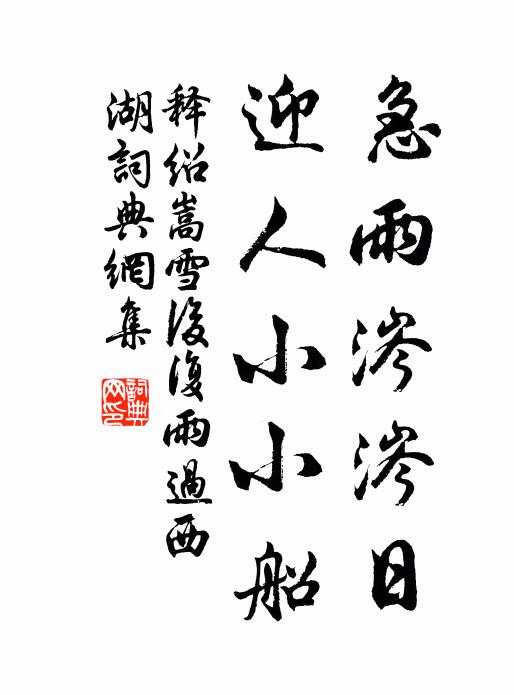 急雨涔涔日
迎人小小船
释绍嵩雪後復雨過西
湖詞典網集
詞典
网印